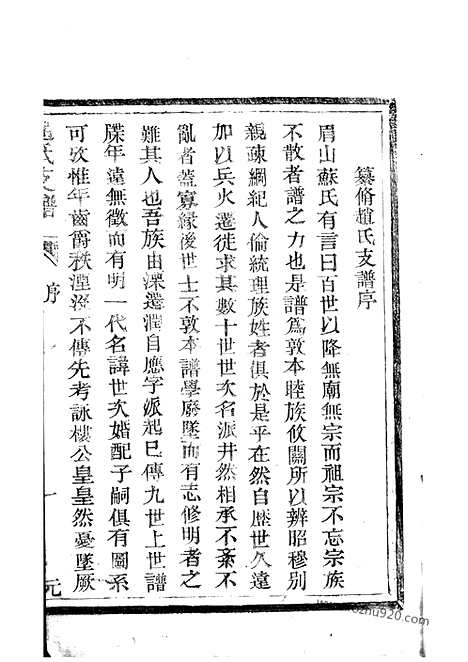 纂脩趙氏支譜序
眉山蘇氏有言曰百世以降無廟無宗而祖宗不忘宗族
不散者譜之力也是譜爲敦本睦族攸關所以辨昭穆別
親疎綱紀人倫統理族姓者俱於是乎在然自歷世久遠
加以兵火遷徙求其數十世世次名派井然相承不紊不
亂者蓋寡緣後世士不敦本譜學廢墜而有志修明者之
難其人也吾族由溧遷潤自應字派起已傳九世上世譜
牒年遠無徵而有明一代名諱世次婚配子嗣俱有圖系
可攷惟年齒爵秩湮沒不傳先考詠樓公皇皇然憂墜厥
趙氏支譜
序
一
元
ouzhu920.com